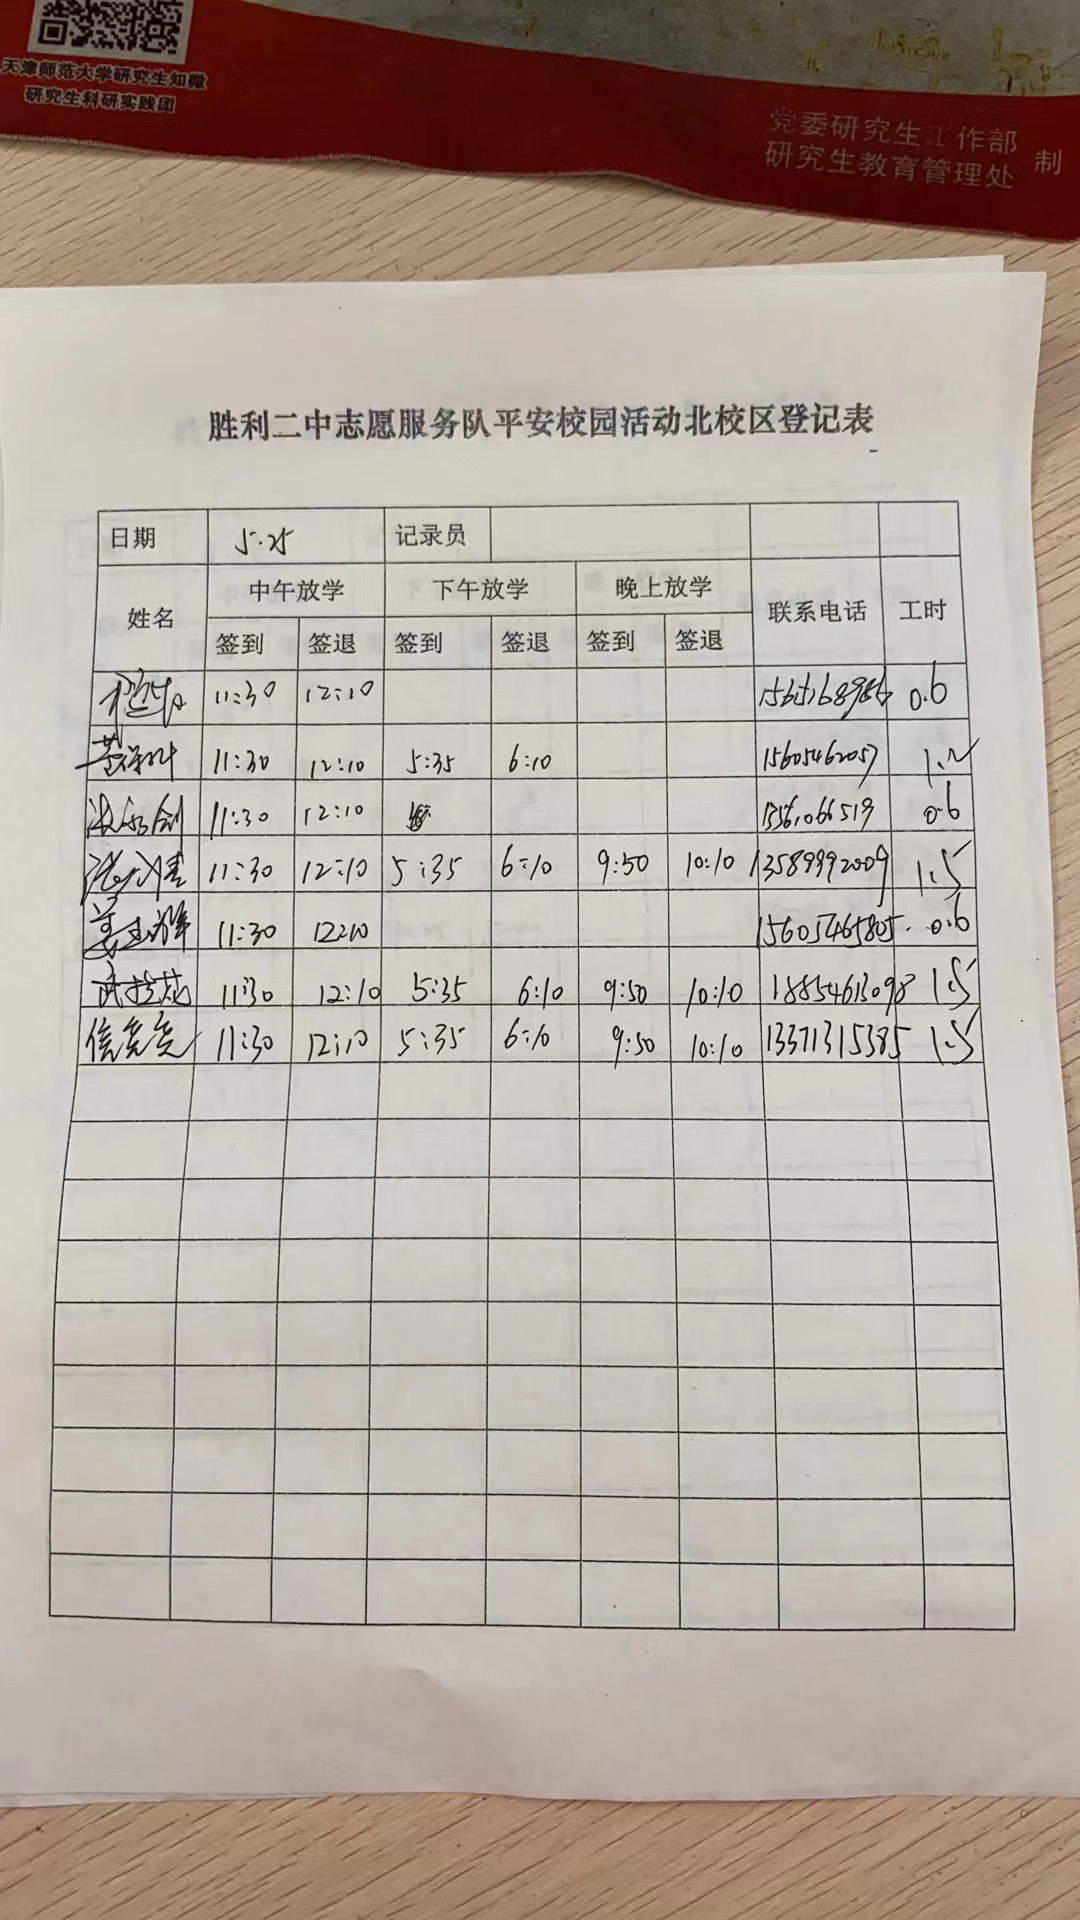 天津师范大学研究生知微
研究生科研实践团
党委研究生工作部
研究生教育管理处 制
胜利二中志愿服务队平安校园活动北校区登记表
日期 5.25 记录员
姓名 中午放学 下午放学 晚上放学 联系电话 工时
签到 签退 签到 签退 签到 签退
11:30 12:10 0.6
11:30 12:10 5:35 6:10 15605462057 1.2
11:30 12:10 0.6
11:30 12:10 5:35 6:10 9:50 10:10 13589992009 1.5
11:30 12:10 15605465805 0.6
11:30 12:10 5:35 6:10 9:50 10:10 18854613098 1.5
11:30 12:10 5:35 6:10 9:50 10:10 13371315385 1.5